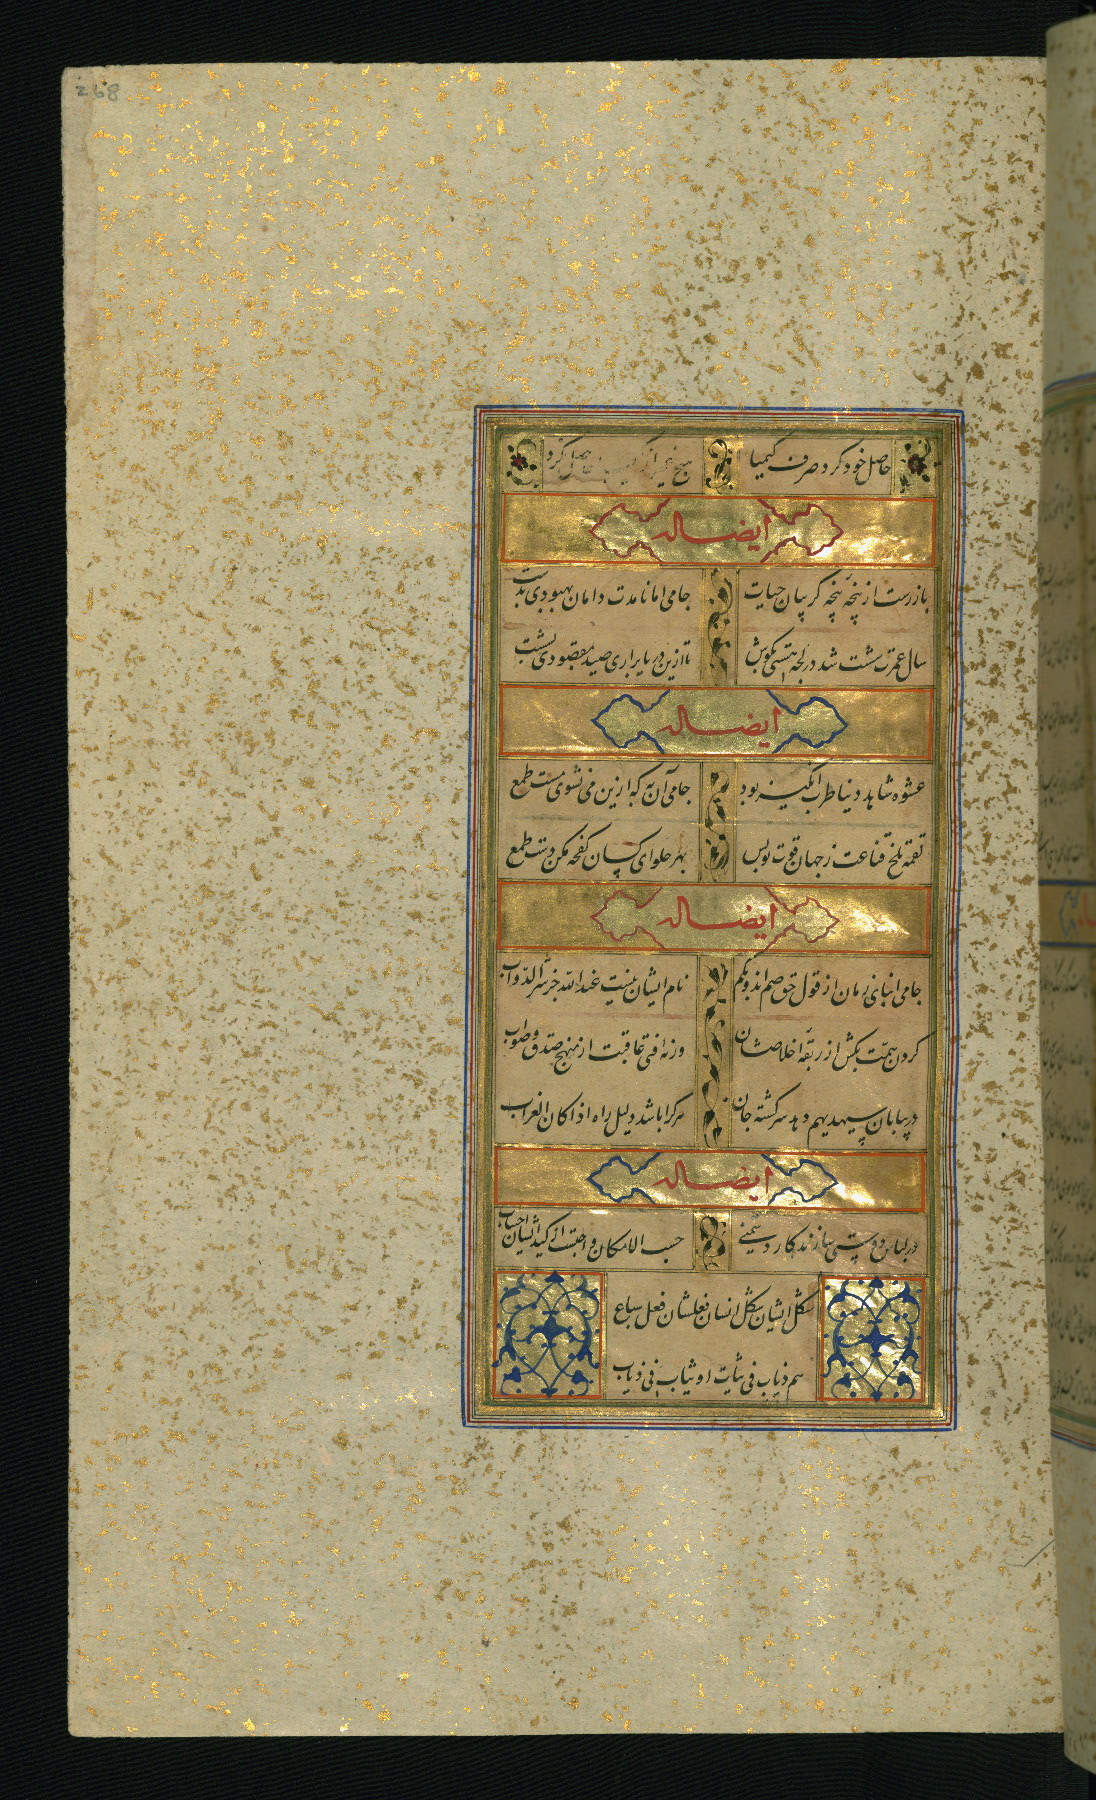 268
حاصل خود کرد صرف کیمیا هیچ نیم از کیمیا حاصل نکرد
ایضاله
باز رست از پنجه پنجه کریبان حیات جامی اما نامدت دامان بهبودی بدست
سال عمرت شست شد در لجه هستی بکوش تا ازین دریا براری صید مقصودی بشست
ایضاله
عشوه شاهد دنیا طرب انکیز بود جامی آن به که ازین می نشوی مست طمع
لقمه تلخ قناعت ز جهان قوت تو بس بهر حلوای کسان کفچه مکن دست طمع
ایضاله
جامی ابنای زمان از قول حق صم اند و بکم نام ایشان نیست عند الله جز شر الدواب
کردن همت بکش از ربقه اخلاصشان ورنه افتی عاقبت از منهج صدق و صواب
در بیابان سیهدیهم دهد سرکشته جان هر کرا باشد دلیل راه اذا کان الغراب
ایضاله
در لباس دوستی سازند کار دشمنی حسب الامکان واجبست از کید ایشان اجتناب
شکل ایشان شکل انسان فعلشان فعل سباع
هم ذیاب فی ثیاب او ثیاب فی ذیاب